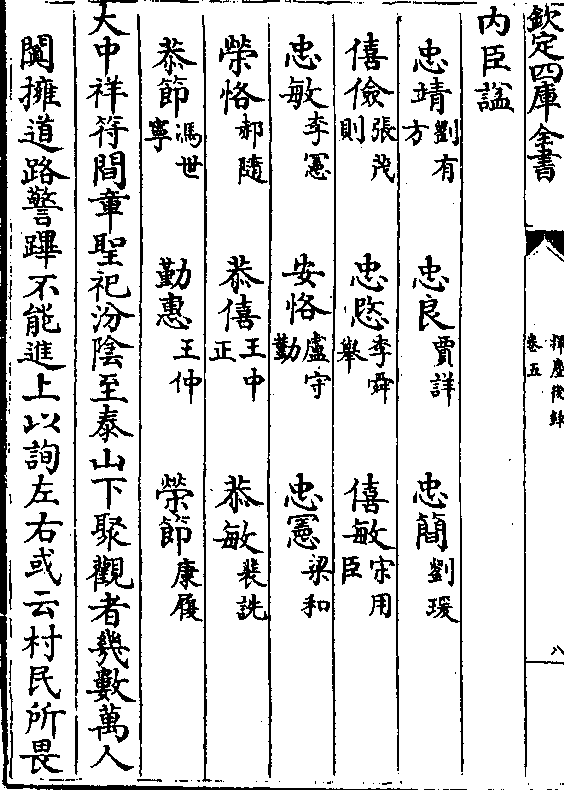 欽定四庫全書
揮麈後録
卷五
八
內臣諡
忠靖劉有方 忠良賈詳 忠簡劉瑗
僖儉張茂則 忠愍李舜舉 僖敏宋用臣
忠敏李憲 安恪盧守勤 忠憲梁和
榮恪郝隨 恭僖王中正 恭敏裴詵
恭節馮世寧 勤惠王仲 榮節康履
大中祥符間章聖祀汾隂至泰山下聚觀者幾數萬人
闐擁道路警蹕不能進上以詢左右或云村民所畏